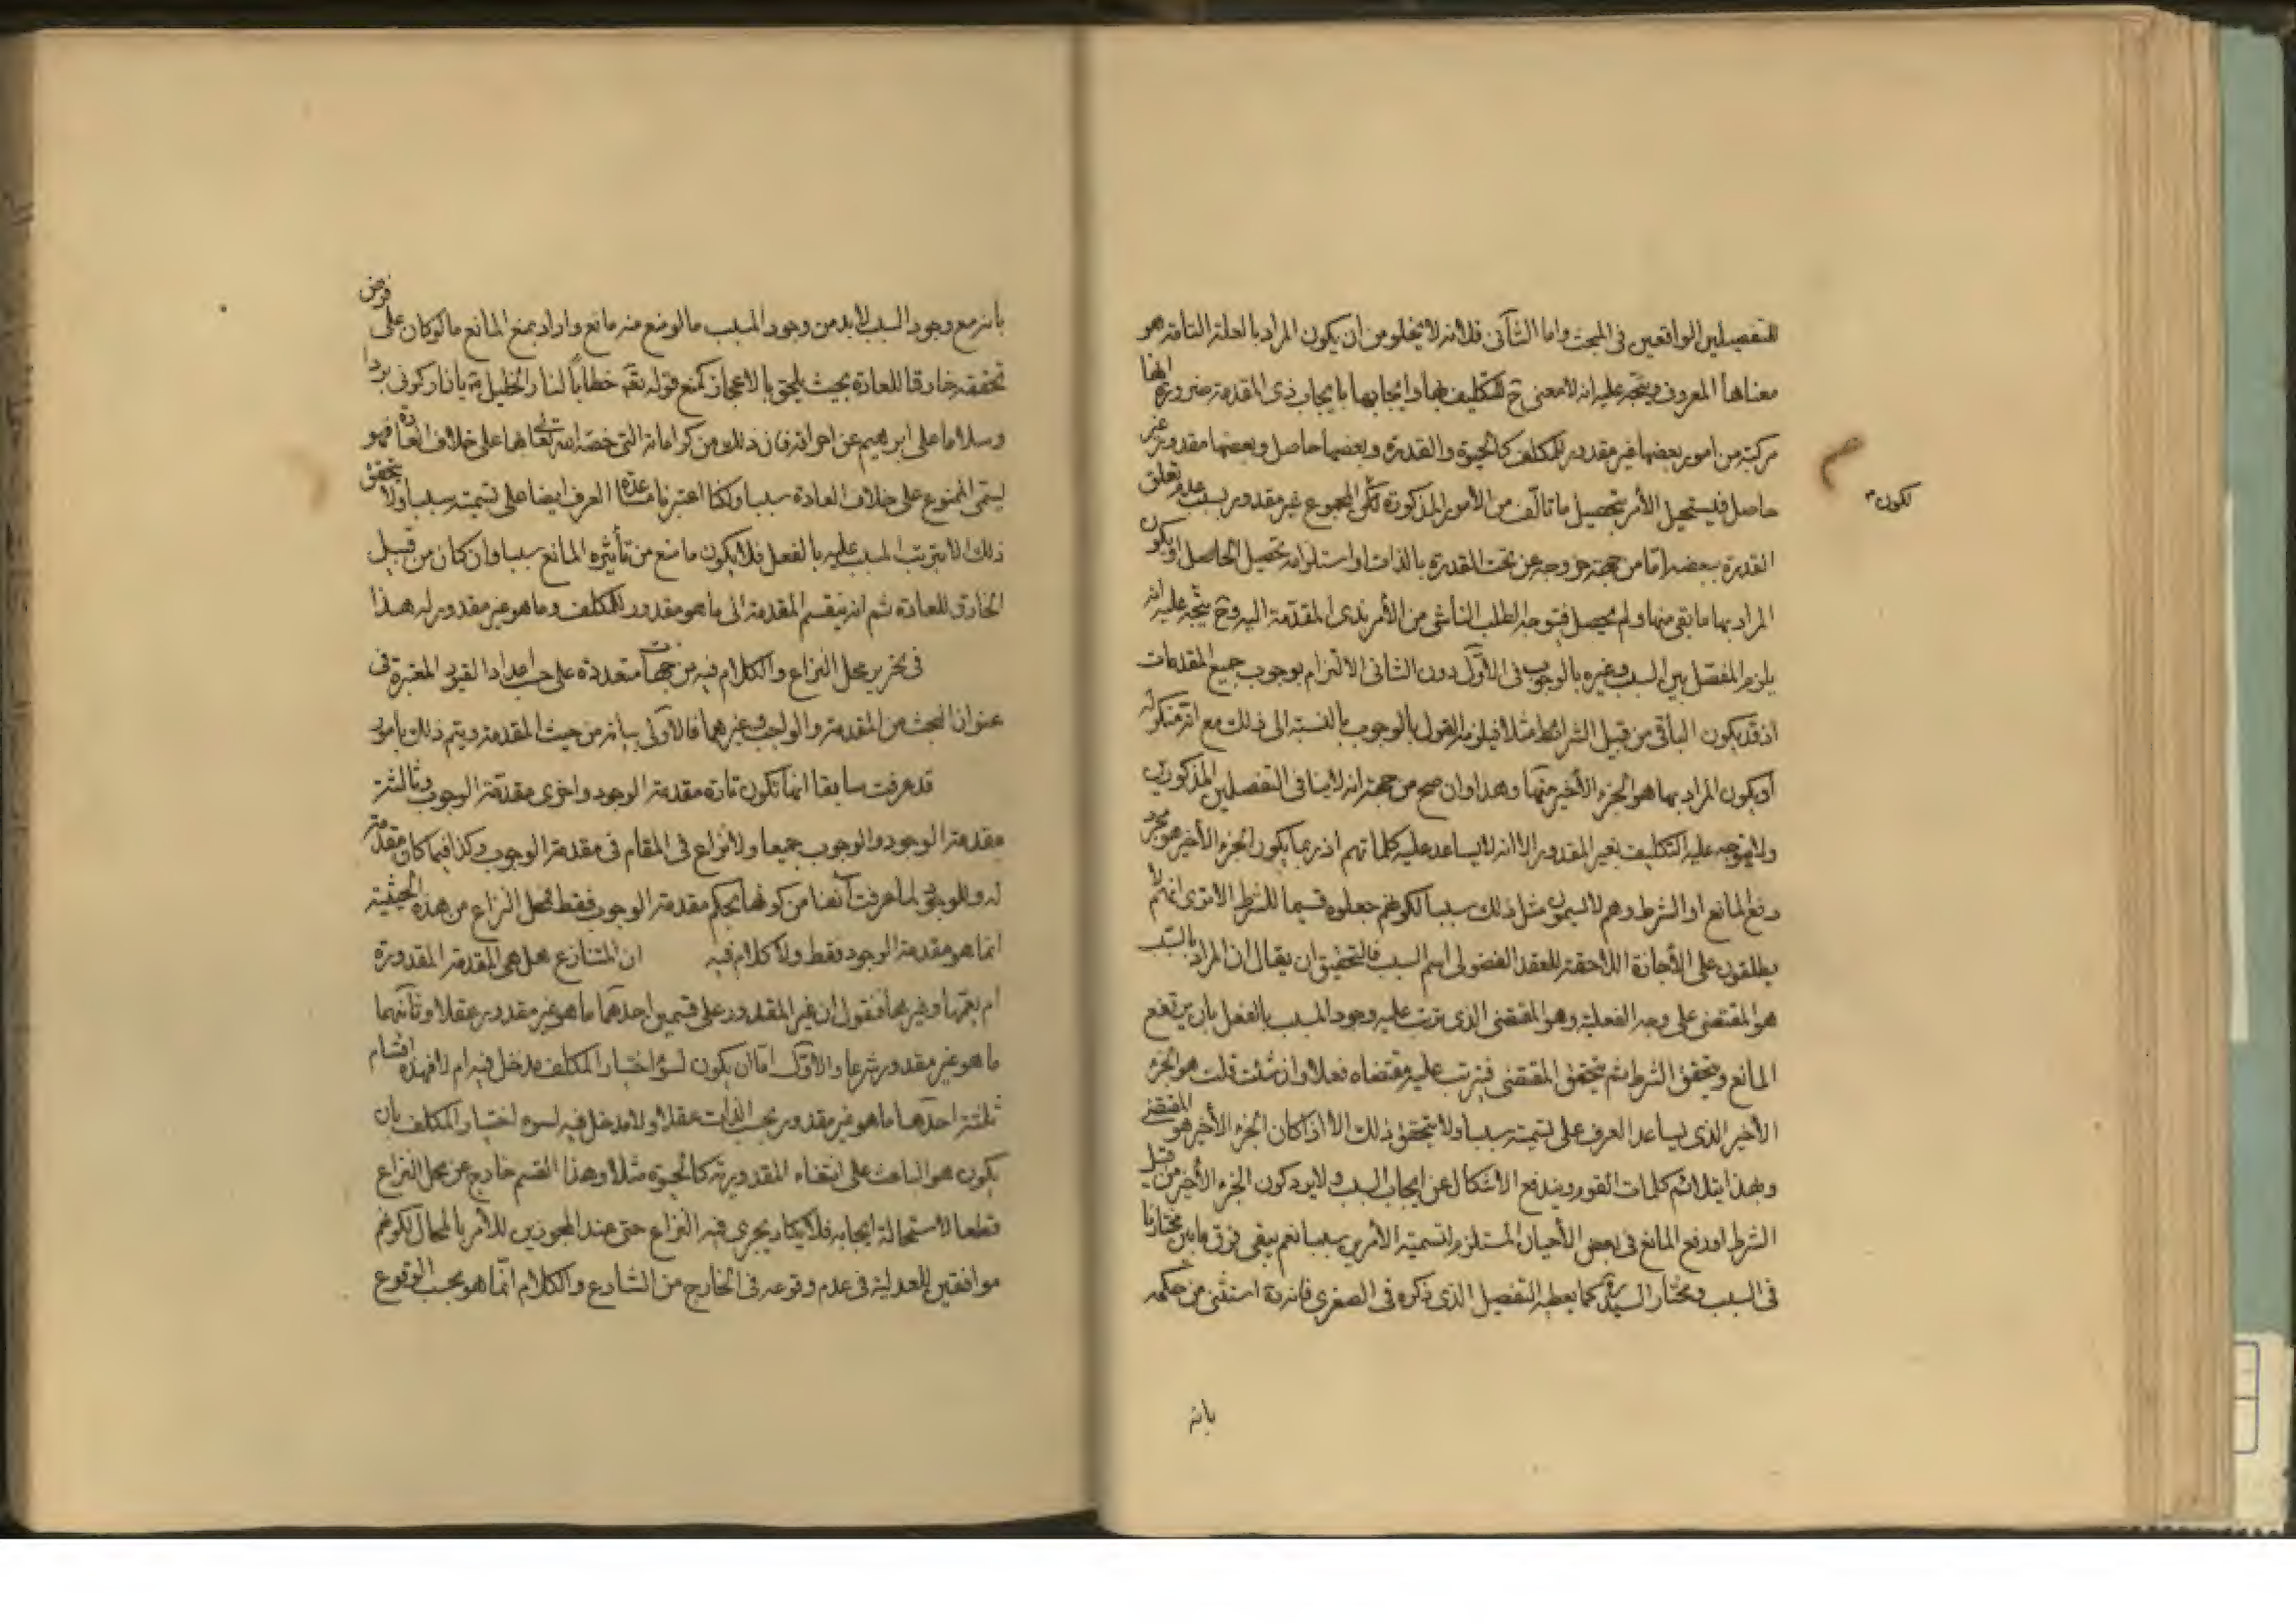 للتفصيلين الواقعين فى المبحث واما الثانى فلانه لا يخلو من ان يكون المراد بالعلة التامة هو
معناها المعروف ويتجه عليه انه لا معنى ح للتكليف بها وايجابها بايجاب ذى المقدمة ضرورة انها
مركبة من امور بعضها غير مقدور للمكلف كالحيوة والقدرة وبعضها حاصل وبعضها مقدور غير
حاصل فيستحيل الأمر بتحصيل ما تألف من الأمور المذكورة لكون المجموع غير مقدور بسبب عدم تعلق
لكون
القدرة ببعضه اما من جهة خروجه عن تحت القدرة بالذات او استلزامه تحصيل الحاصل او يكون
المراد بها ما بقى منها ولم يحصل فيتوجه الطلب الناشى من الأمر بذى المقدمة اليه وح يتجه عليه انه
يلزم المفصل بين السبب وغيره بالوجوب فى الاول دون الثانى الالتزام بوجوب جميع المقدمات
اذ قد يكون الباقى من قبيل الشرائط مثلا فيلزمه القول بالوجوب بالنسبة الى ذلك مع انه منكر له
أو يكون المراد بها هو الجزء الأخير منها وهذا وان صح من جهة انه لا ينافى التفصيلين المذكورين
ولا يتوجه عليه التكليف بغير المقدور الا انه لا يساعد عليه كلماتهم اذ ربما يكون الجزء الأخير هو مجرد
رفع المانع او الشرط وهم لا يسمون مثل ذلك سببا لكونهم جعلوه قسيما للشرط الا ترى انهم لا
يطلقون على الأجازة اللاحقة للعقد الفضولى اسم السبب فالتحقيق ان يقال ان المراد بالسبب
هو المقتضى على وجه الفعلية وهو المقتضى الذى ترتب عليه وجود المسبب بالفعل بان يرتفع
المانع ويتحقق الشرط ثم يتحقق المقتضى فيترتب عليه مقتضاه فعلا وان شئت قلت هو الجزء
الأخير الذى يساعد العرف على تسميته سببا ولا يتحقق ذلك الا اذا كان الجزء الأخير هو المقتضى
وبهذا يتلائم كلمات القوم ويندفع الأشكال عن ايجاب السبب ولا يرد كون الجزء الأخير من قبيل
الشرط او رفع المانع فى بعض الأحيان المستلزم لتسمية الأمرين سببا نعم يبقى فرق ما بين مختارنا
فى السبب ومختار السيد ره كما يعطيه التفصيل الذى ذكره فى الصغرى فانه ره استثنى من حكمه
بانه
بانه مع وجود السبب لا بد من وجود المسبب ما لو منع منه مانع واراد بمنع المانع ما لو كان على فرض
تحققه خارقا للعادة بحيث يلحق بالاعجاز كمنع قوله تعه خطابا لنار الخليل ية يا نار كونى بردا
وسلاما على ابرهيم عن احراقه فان ذلك من كراماته التى خصه الله تعالى بها على خلاف العادة فهو
يسمى الممنوع على خلاف العادة سببا ولكنا اعتبرنا مساعدة العرف ايضا على تسميته سببا ولا يتحقق
ذلك الا بترتب المسبب عليه بالفعل فلا يكون ما منع من تأثيره المانع سببا وان كان من قبيل
الخارق للعادة ثم انه ينقسم المقدمة الى ما هو مقدور للمكلف وما هو غير مقدور له هذا
فى تحرير محل النزاع والكلام فيه من جهات متعددة على حسب اعداد القيود المعتبرة فى
عنوان البحث من المقدمة والواجب وغيرهما فالاولى بيانه من حيث المقدمة ويتم ذلك بامور
قد عرفت سابقا انها تكون تارة مقدمة الوجود واخرى مقدمة الوجوب وثالثة
مقدمة الوجود والوجوب جميعا ولا نزاع فى المقام فى مقدمة الوجوب وكذا فيما كان مقدمة
له وللوجود لما عرفت آنفا من كونها بحكم مقدمة الوجوب فقط فمحل النزاع من هذه الحيثية
انما هو مقدمة الوجود فقط ولا كلام فيه ان المتنازع هل هى المقدمة المقدورة
ام يعمها وغيرها فنقول ان غير المقدور على قسمين احدهما ما هو غير مقدور عقلا وثانيهما
ما هو غير مقدور شرعا والاول اما ان يكون لسوء اختيار المكلف مدخل فيه ام لا فهذه اقسام
ثلثة احدها ما هو غير مقدور بحسب الذات عقلا ولا مدخل فيه لسوء اختيار المكلف بان
يكون هو الباعث على انتفاء المقدورية كالحيوة مثلا وهذا القسم خارج عن محل النزاع
قطعا لاستحالة ايجابه فلا يكاد يجرى فيه النزاع حتى عند المجوزين للأمر بالمحال لكونهم
موافقين للعدلية فى عدم وقوعه فى الخارج من الشارع والكلام انما هو بحسب الوقوع